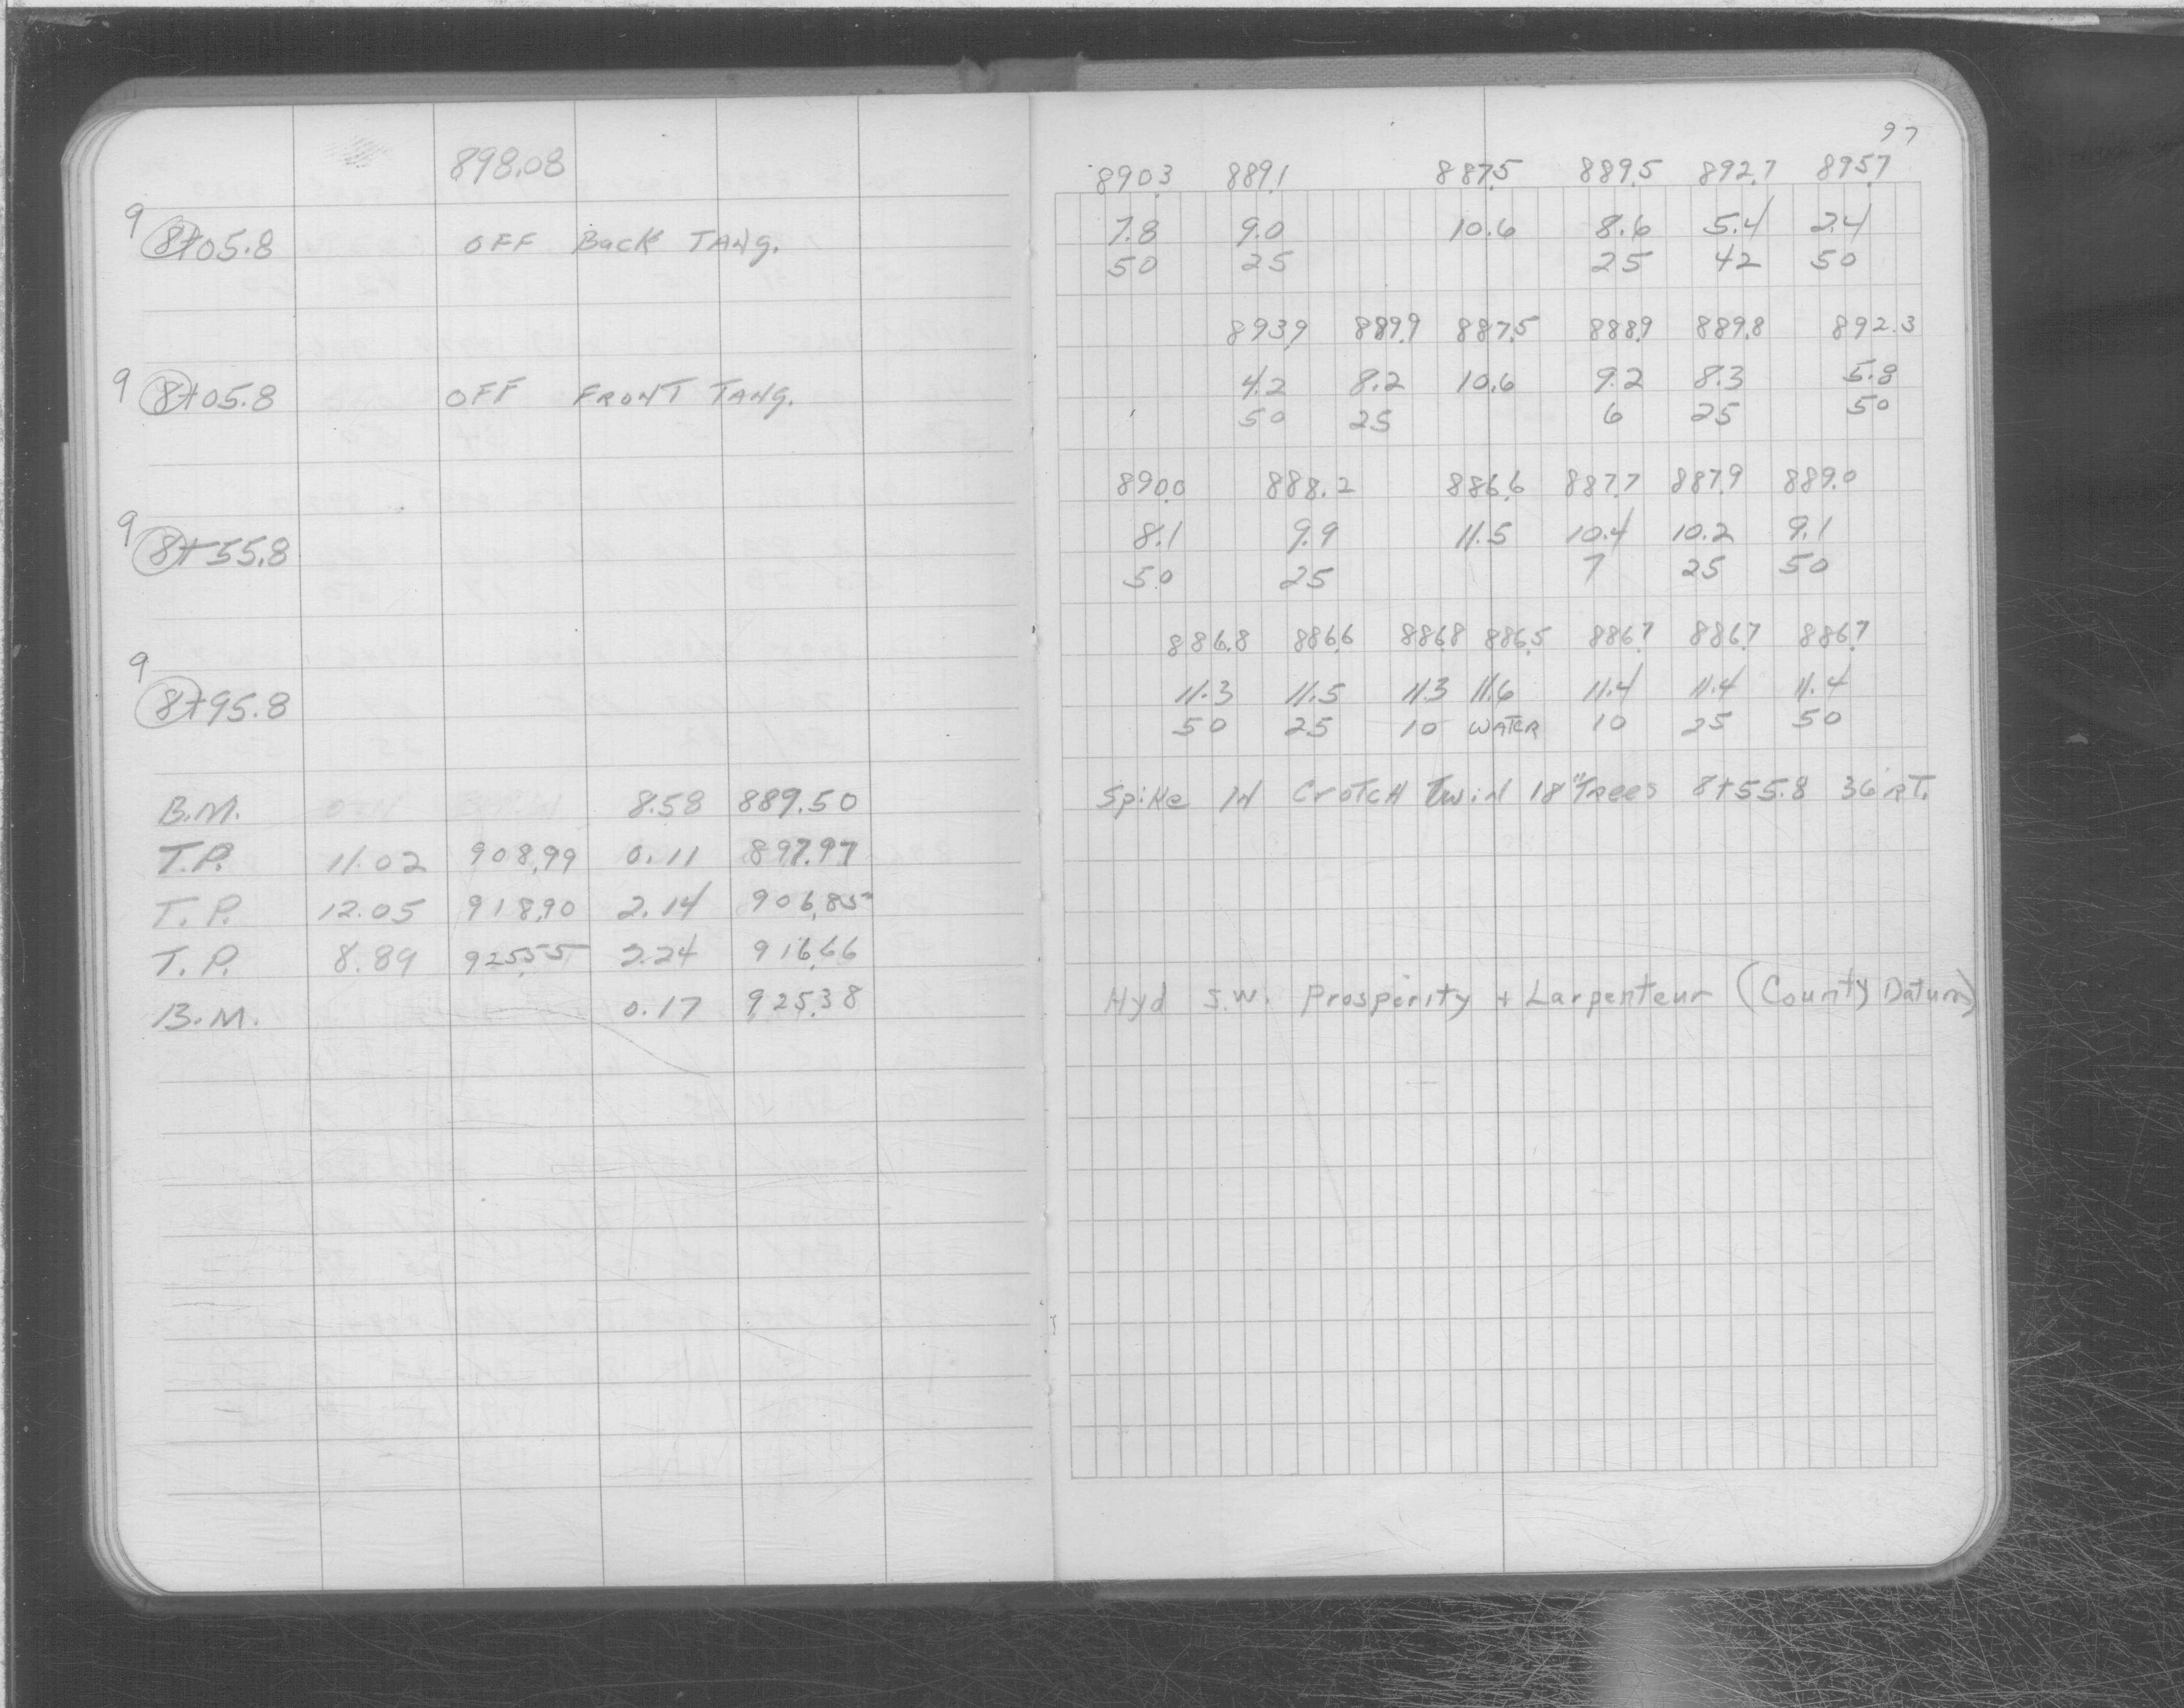 97
898.08
890.3 889.1 887.5 889.5 892.7 895.7
9
8+05.8 OFF Back TANG.
7.8 9.0 10.6 8.6 5.4 2.4
50 25 25 42 50
893.9 889.9 887.5 888.9 889.8 892.3
9
8+05.8 OFF FRONT TANG.
4.2 8.2 10.6 9.2 8.3 5.8
50 25 6 25 50
890.0 888.2 886.6 887.7 887.9 889.0
9
8+55.8
8.1 9.9 11.5 10.4 10.2 9.1
50 25 7 25 50
886.8 886.6 886.8 886.5 886.7 886.7 886.7
9
8+95.8
11.3 11.5 11.3 11.6 11.4 11.4 11.4
50 25 10 WATER 10 25 50
B.M. 8.58 889.50 Spike IN CroTcH Twin 18" Trees 8+55.8 36' RT.
T.P. 11.02 908.99 0.11 897.97
T.P. 12.05 918.90 2.14 906.85
T.P. 8.89 925.55 2.24 916.66
B.M. 0.17 925.38 Hyd S.W. Prosperity + Larpenteur (County Datum)